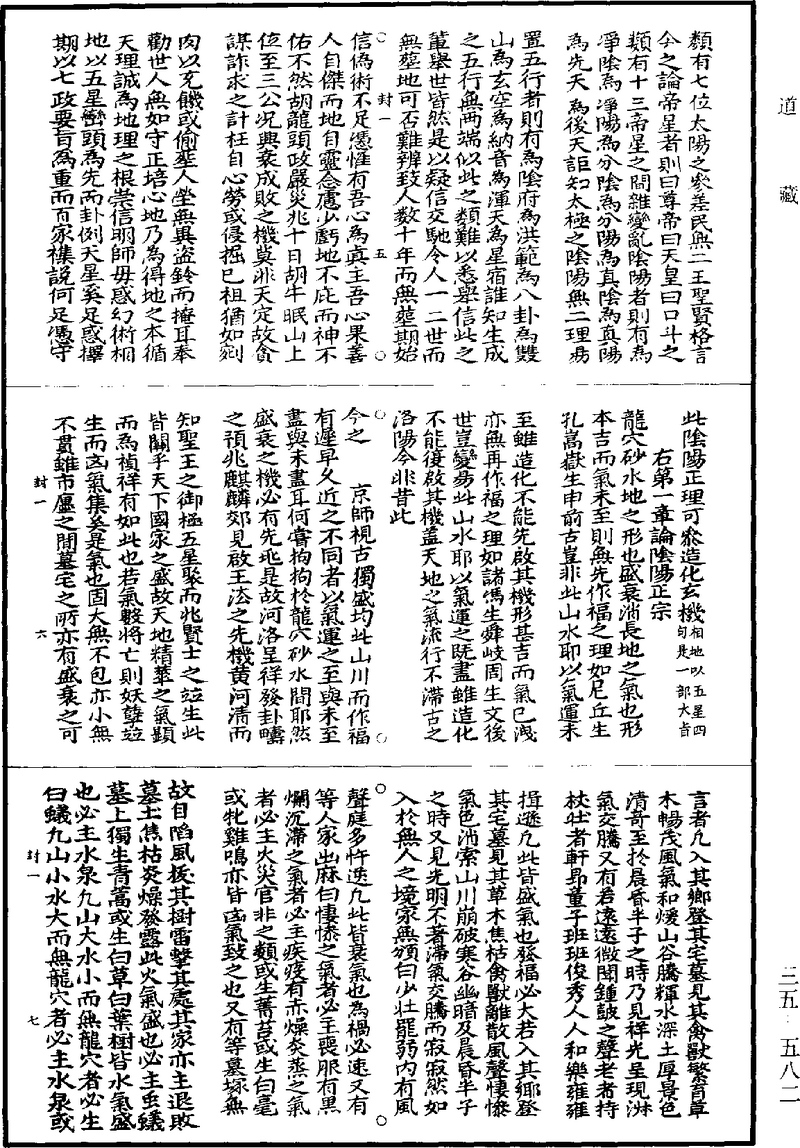 道藏
類有七位太陽之參差民無二王聖賢格言
今之論帝星者則曰尊帝曰天皇曰口斗之
類有十三帝星之間雜變亂陰陽者則有為
淨陰為淨陽為分陰為分陽為真陰為真陽
為先天為後天詎知太極之陰陽無二理易
置五行者則有為陰府為洪範為八卦為雙
山為玄空為納音為渾天為星宿誰知生成
之五行無兩端似此之類難以悉舉信此之
輩舉世皆然是以疑信交馳令人一二世而
無塟地可否難辨致人数十年而無塟期始
封一 五
信偽術不足憑惟有吾心為真主吾心果善
人自傑而地自靈念慮少虧地不庇而神不
佑不然胡龍頭政嚴災兆十日胡牛眠山上
位至三公况興衰成敗之機莫非天定故貪
謀詐求之計枉自心勞或侵掘已祖猶如剜
肉以充饑或偷塟人塋無異盜鈴而掩耳奉
勸世人無如守正培心地乃為得地之本循
天理誠為地理之根崇信明師毋惑幻術相
地以五星巒頭為先而卦例天星奚足惑擇
期以七政要旨為重而百家襍說何足憑守
此陰陽正理可參造化玄機相地以五星四句是一部大旨
右第一章論陰陽正宗
龍穴砂水地之形也盛衰消長地之氣也形
本吉而氣未至則無先作福之理如尼丘生
孔嵩嶽生申前古豈非此山水耶以氣運未
至雖造化不能先啟其機形甚吉而氣已洩
亦無再作福之理如諸馮生舜岐周生文後
世豈變易此山水耶以氣運之既盡雖造化
不能復啟其機蓋天地之氣流行不滯古之
洛陽今非昔此
今之 京師視古獨盛均此山川而作福
有遲早久近之不同者以氣運之至與未至
盡與未盡耳何嘗拘拘於龍穴砂水間耶然
盛衰之機必有先兆是故河洛呈祥發卦疇
之預兆麒麟郊見啟王法之先機黄河清而
知聖王之御極五星聚而兆賢士之竝生此
皆關乎天下國家之盛故天地精華之氣顯
而為禎祥有如此也若氣數將亡則妖孽竝
生而凶氣集矣是氣也固大無不包亦小無
不貫雖市廛之間墓宅之所亦有盛衰之可
封一 六
言者凡入其鄉登其宅墓見其禽獸繁育草
木暢茂風氣和煖山谷騰輝水深土厚景色
清奇至於晨昏半子之時乃見祥光呈現淋
氣交騰又有若遠遠微聞鍾皷之聲老者持
杖壯者軒昂童子班班俊秀人人和樂雍雍
揖遜凡此皆盛氣也發福必大若入其鄉登
其宅墓見其草木焦枯禽獸離散風聲悽慘
氣色消索山川崩破寒谷幽暗及晨昏半子
之時又見光明不著滯氣交騰而寂寂然如
入於無人之境家無頒白少壯罷弱内有風
聲庭多忤逆凡此皆衰氣也為禍必速又有
等人家出麻曰悽慘之氣者必主喪服有黑
爛沉滯之氣者必主疾疫有赤燥炎蒸之氣
者必主火災官非之類或生菁苔或生白毫
或牝雞鳴亦皆凶氣致之也又有等墓塚無
故自陷風拔其樹雷擊其處其家亦主退敗
墓土焦枯炎燥發露此火氣盛也必主虫蟻
墓上獨生青蒿或生白草白葉樹皆水氣盛
也必主水泉凡山大水小而無龍穴者必生
白蟻凡山小水大而無龍穴者必主水泉或
封一 七
三五·五八二